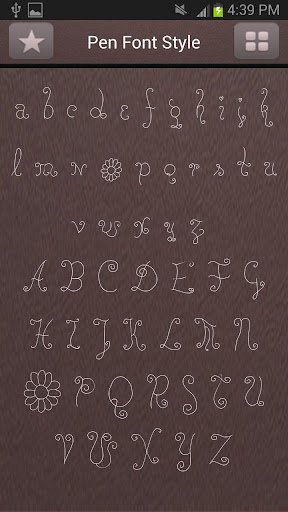 4:39 PM
Pen Font Style
a b c d e f g h i j k
l m n o p q r s t u
v w x y z
A B C D E F G
H I J K L M N
O P Q R S T U
V W X Y Z